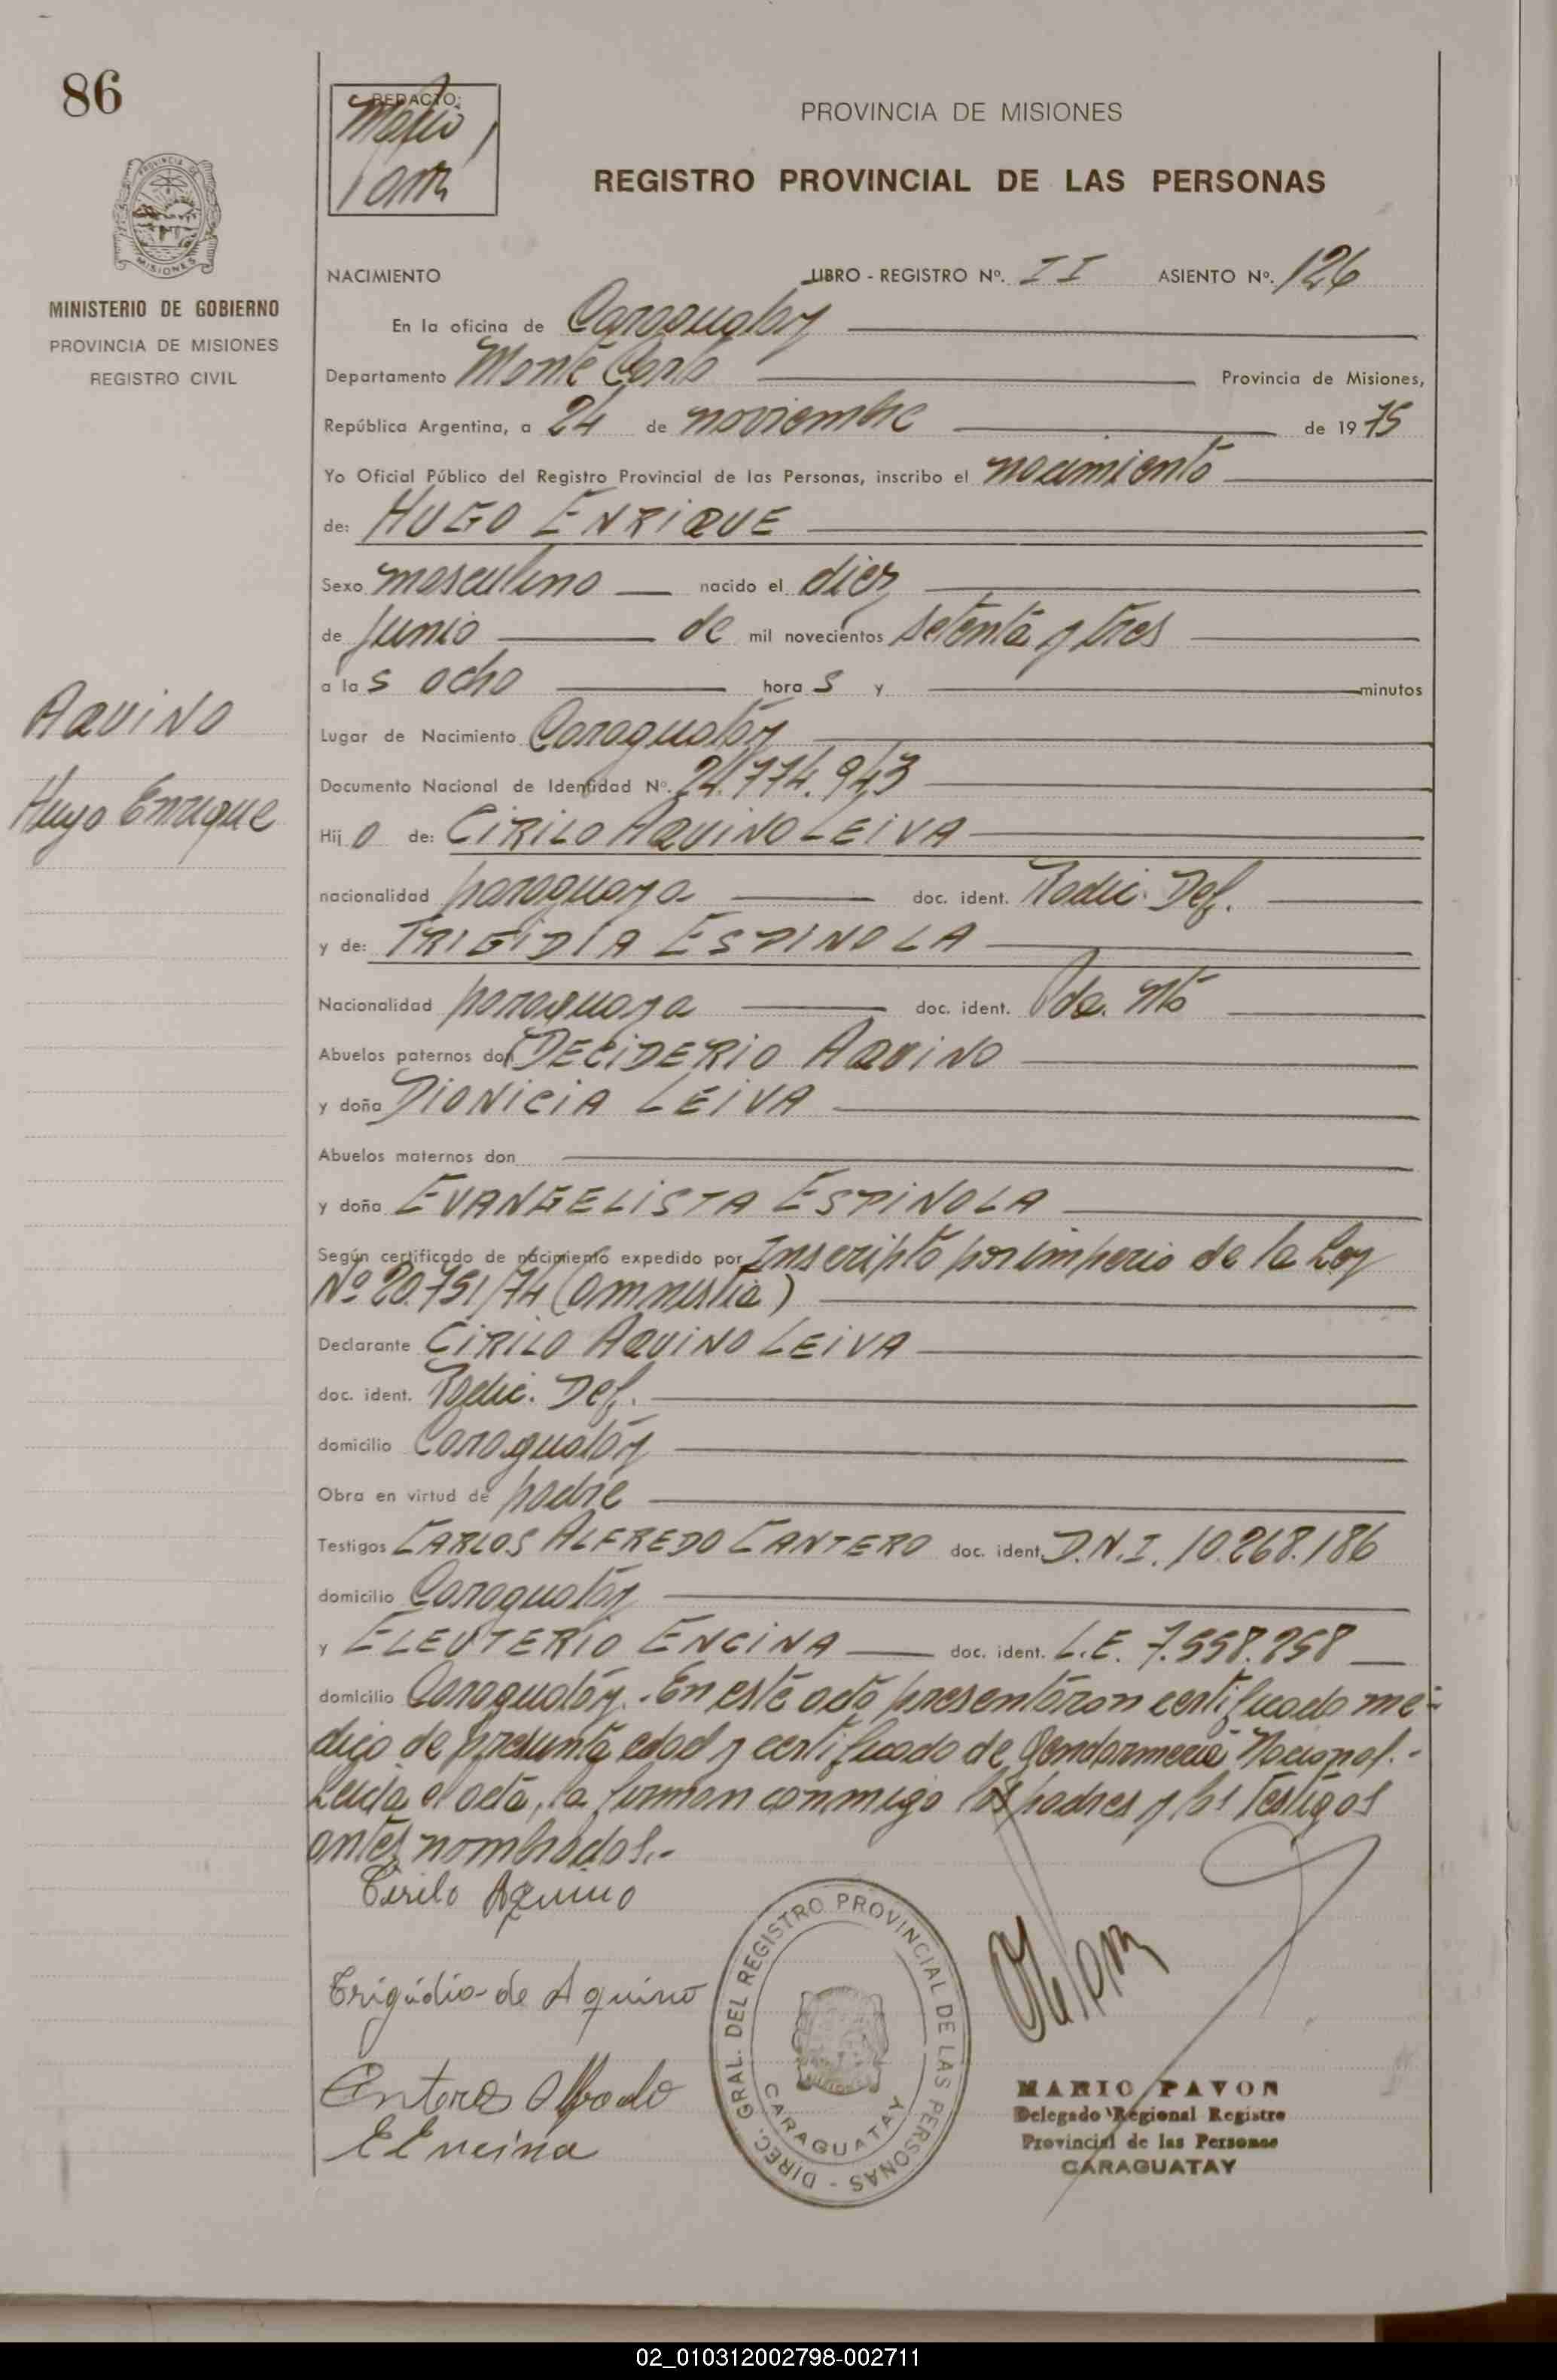 86
REDACTO:
Mario
PROVINCIA DE MISIONES
REGISTRO PROVINCIAL DE LAS PERSONAS
PROVINCIA DE
MISIONES
MINISTERIO DE GOBIERNO
PROVINCIA DE MISIONES
REGISTRO CIVIL
Aquino
Hugo Enrique
NACIMIENTO LIBRO - REGISTRO Nº. II ASIENTO Nº. 126
En la oficina de Caraguatay
Departamento Monte Carlo Provincia de Misiones,
República Argentina, a 24 de noviembre de 1975
Yo Oficial Público del Registro Provincial de las Personas, inscribo el nacimiento
de: HUGO ENRIQUE
Sexo masculino nacido el diez
de junio de mil novecientos setenta y tres
a las ocho horas y minutos
Lugar de Nacimiento Caraguatáy
Documento Nacional de Identidad Nº. 24.774.943
Hijo de: CIRILO AQUINO LEIVA
nacionalidad paraguaya doc. ident. Radic. Def.
y de: TRIGIDIA ESPINOLA
Nacionalidad paraguaya doc. ident.
Abuelos paternos don DECIDERIO AQUINO
y doña DIONICIA LEIVA
Abuelos maternos don
y doña EVANGELISTA ESPINOLA
Según certificado de nacimiento expedido por Inscripto por imperio de la Ley
Nº 20.751/74 (amnistia)
Declarante CIRILO AQUINO LEIVA
doc. ident. Radic. Def.
domicilio Caraguatáy
Obra en virtud de padre
Testigos CARLOS ALFREDO CANTERO doc. ident. D.N.I. 10.268.186
domicilio Caraguatáy
y ELEUTERIO ENCINA doc. ident. L.E. 7.558.258
domicilio Caraguatáy.- En este acto presentaron certificado mé-
dico de presunta edad y certificado de Gendarmeria Nacional.-
Leida el acta, la firman conmigo los padres y los testigos
antes nombrados.-
Cirilo Aquino
Trigidia de Aquino
E Encina
DIREC. GRAL. DEL REGISTRO PROVINCIAL DE LAS PERSONAS -
CARAGUATAY
MARIO PAVON
Delegado Regional Registro
Provincial de las Personas
CARAGUATAY
02_010312002798-002711